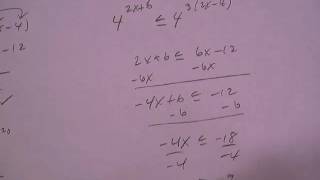 x-4)
-12
4^{2x+6} ≤ 4^{3(2x-4)}
2x+6 ≤ 6x-12
-6x -6x
-4x+6 ≤ -12
-6 -6
-4x ≤ -18
-4 -4